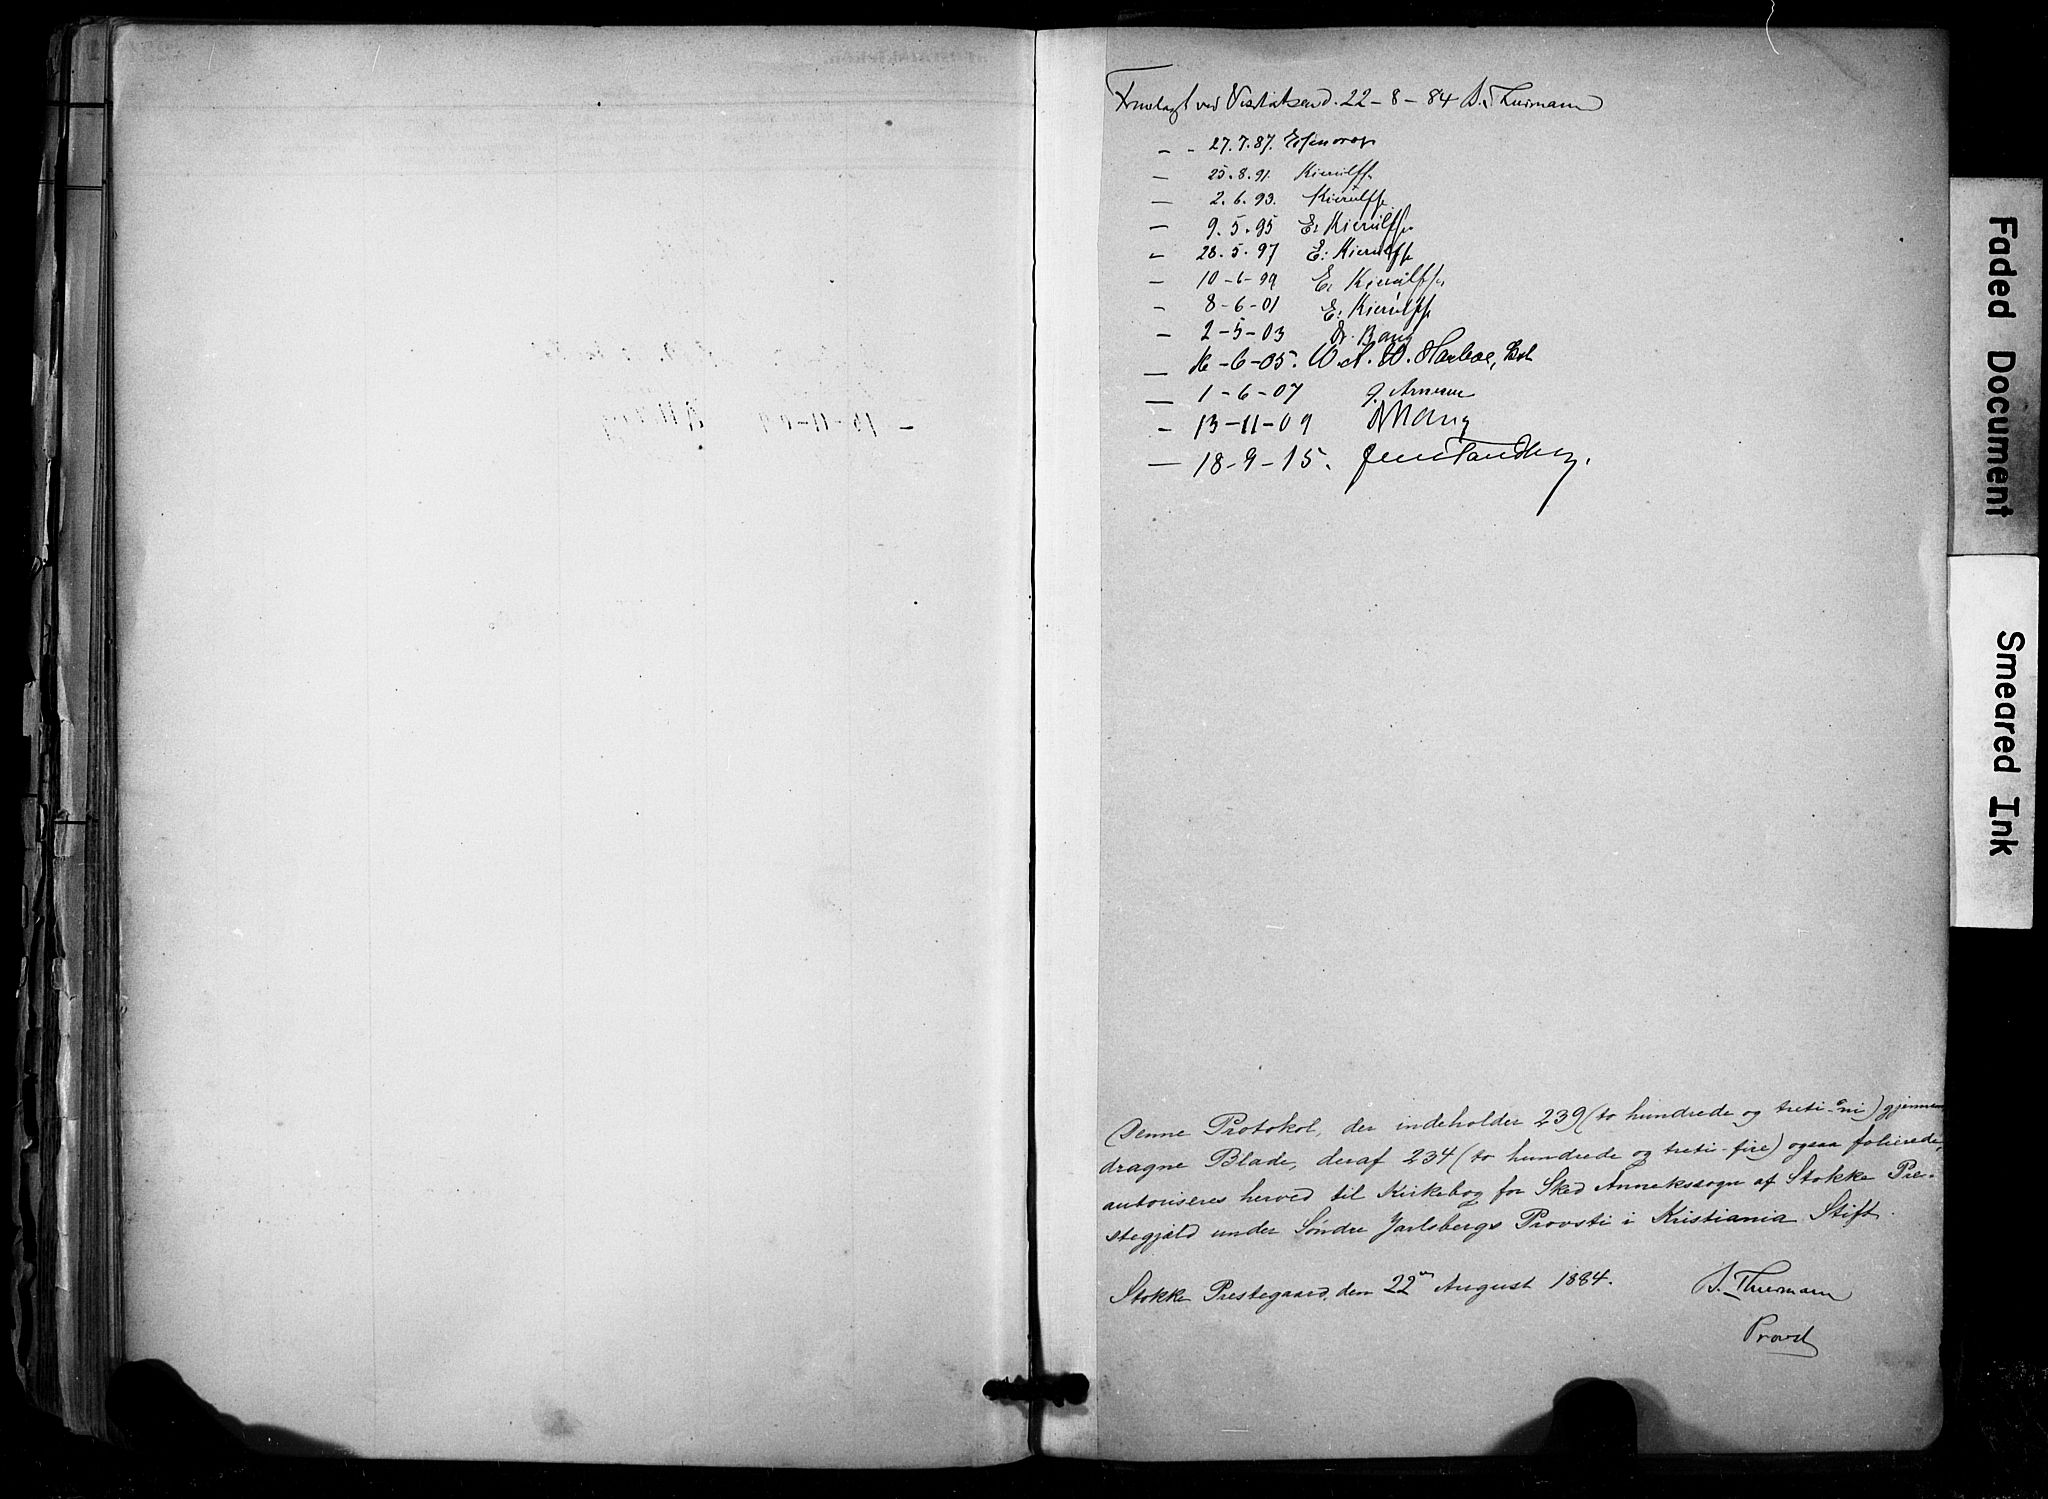 Fremlagt ved Visitatsen d. 22-8-84 S. Thurmann
— - 27.7.87. Essendrop
— 25.8.91. Kierulff
— 2.6.93. Kierulff
— 9.5.95 E. Kierulff
— 28.5.97 E. Kierulff
— 10-6-99 E. Kierulff
— 8-6-01 E. Kierulff
— 2-5-03 Bang
— 16-6-05. W. Harboe,
— 1-6-07 J. Arnesen
— 13-11-09 Bang
— 18-9-15. Jens Tandberg.
Denne Protokol, der indeholder 239 (to hundrede og treti-ni) gjennem
dragne Blade, deraf 234 (to hundrede og treti-fire) ogsaa folierede,
autoriseres herved til Kirkebog for Skee Annekssogn af Stokke Præ-
stegjæld under Søndre Jarlsbergs Provsti i Kristiania Stift.
Stokke Prestegaard, den 22 August 1884. S. Thurmann
Provst
Faded Document
Smeared Ink